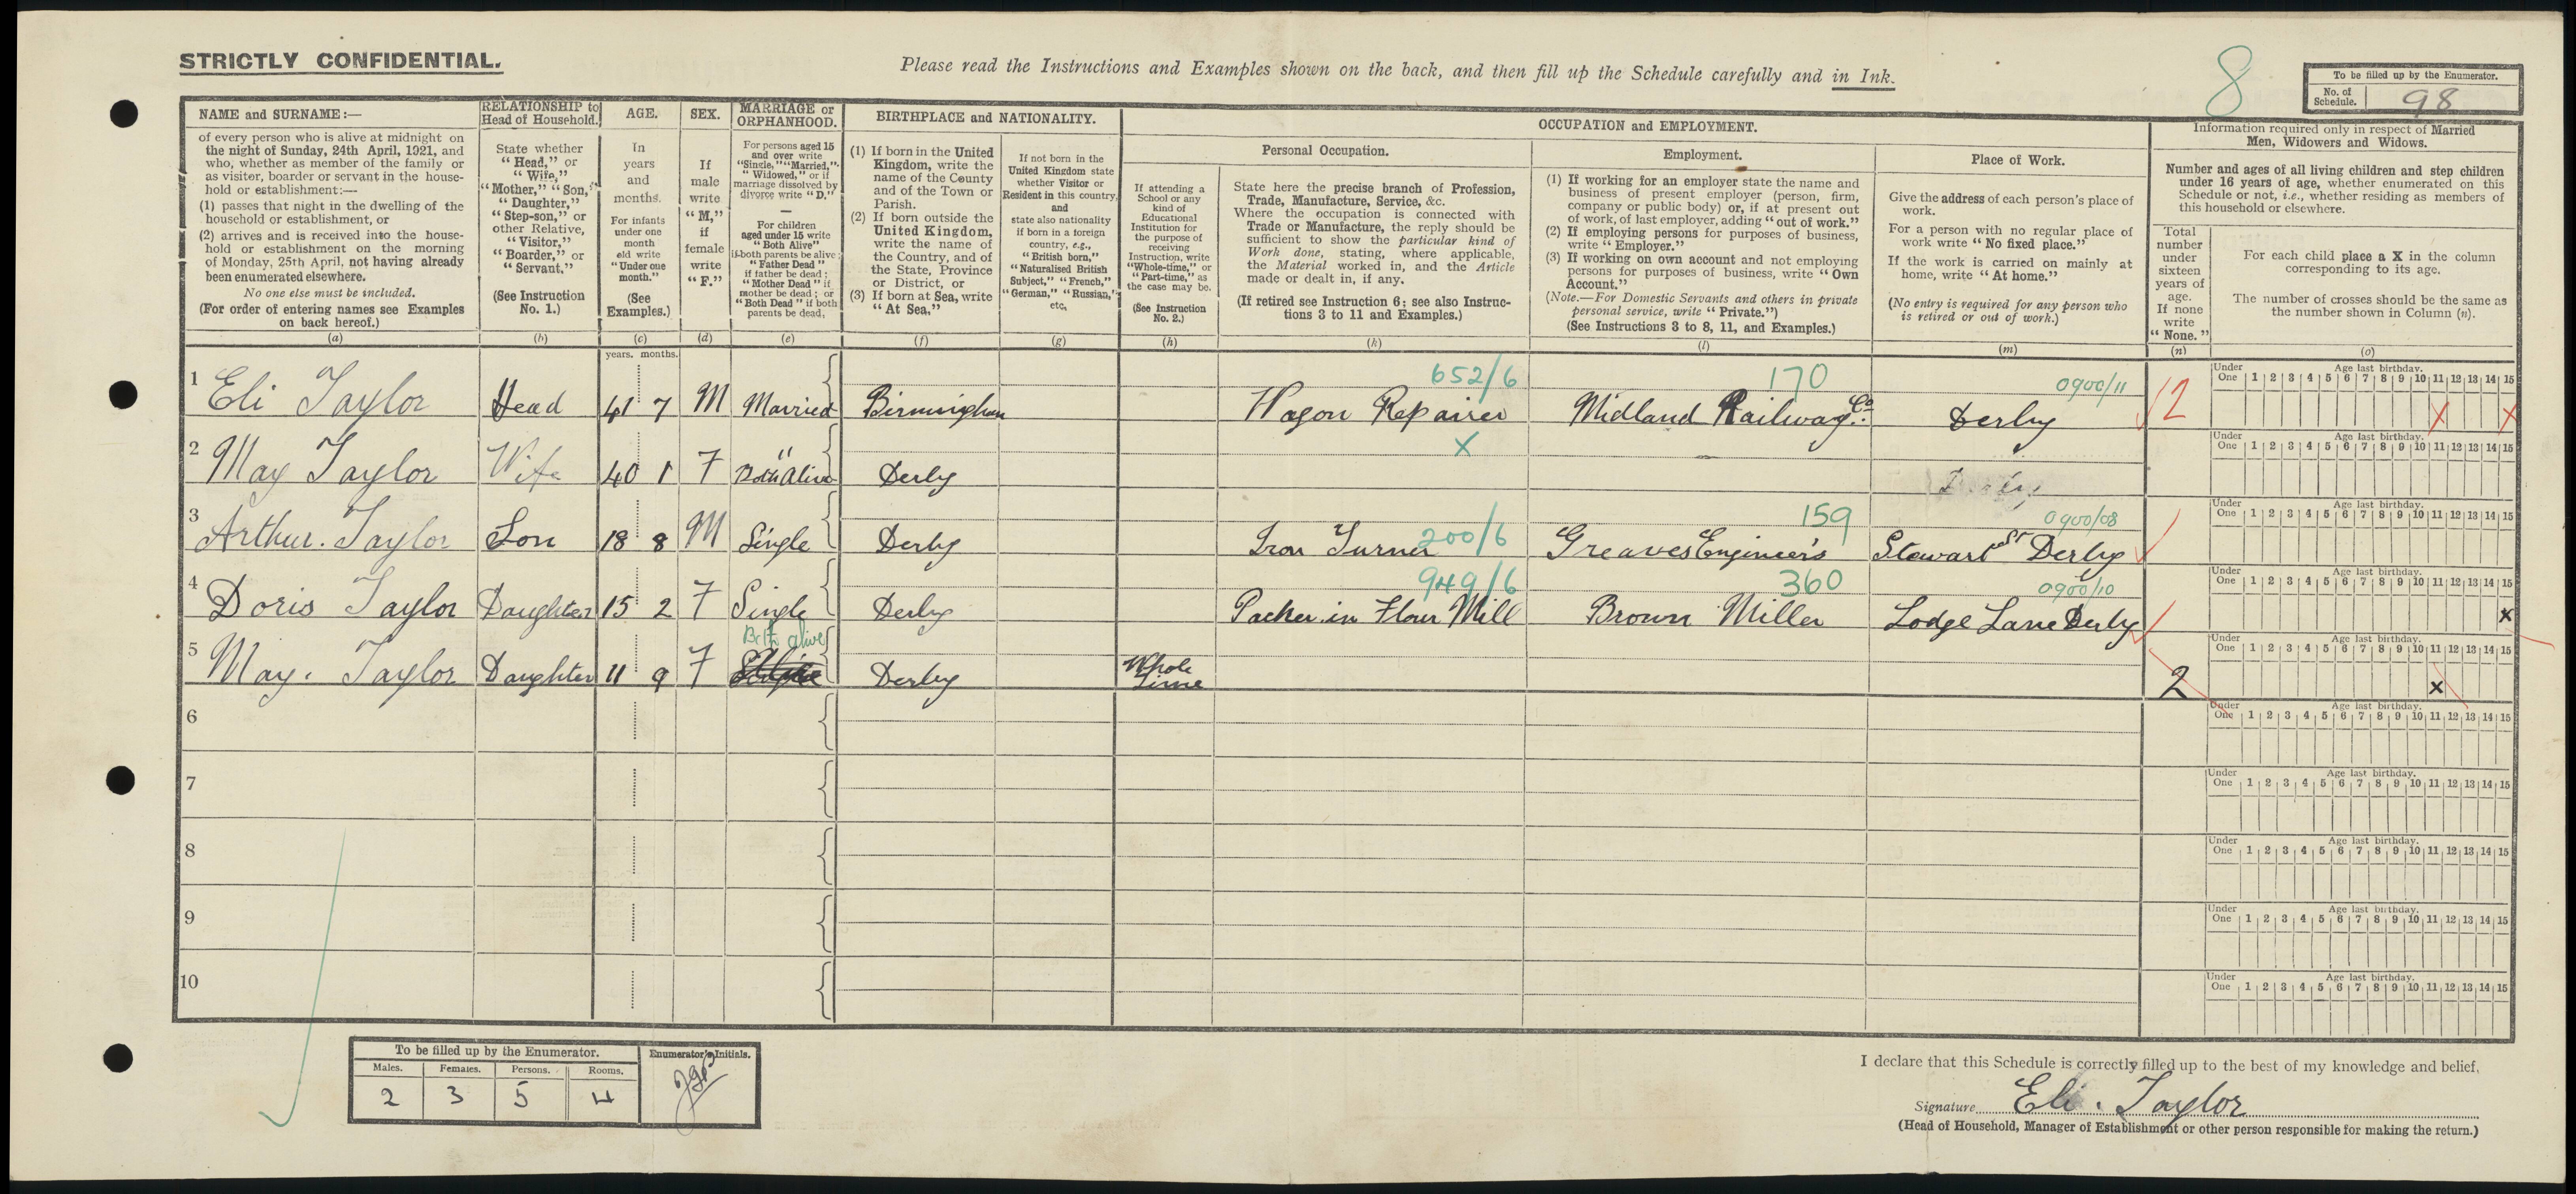 STRICTLY CONFIDENTIAL.
Please read the Instructions and Examples shown on the back, and then fill up the Schedule carefully and in Ink.
8
To be filled up by the Enumerator.
No. of Schedule. 98
NAME and SURNAME:—
of every person who is alive at midnight on
the night of Sunday, 24th April, 1921, and
who, whether as member of the family or
as visitor, boarder or servant in the house-
hold or establishment:—
(1) passes that night in the dwelling of the
household or establishment, or
(2) arrives and is received into the house-
hold or establishment on the morning
of Monday, 25th April, not having already
been enumerated elsewhere.
No one else must be included.
(For order of entering names see Examples
on back hereof.)
(a)
RELATIONSHIP to
Head of Household.
State whether
"Head," or
"Wife,"
"Mother," "Son,"
"Daughter,"
"Step-son," or
other Relative,
"Visitor,"
"Boarder," or
"Servant."
(See Instruction
No. 1.)
(b)
AGE.
In
years
and
months.
For infants
under one
month
old write
"Under one
month."
(See
Examples.)
(c)
years. months.
SEX.
If
male
write
"M,"
if
female
write
"F."
(d)
MARRIAGE or
ORPHANHOOD.
For persons aged 15
and over write
"Single," "Married,"
"Widowed," or if
marriage dissolved by
divorce write "D."
—
For children
aged under 15 write
"Both Alive"
if both parents be alive;
"Father Dead"
if father be dead;
"Mother Dead" if
mother be dead; or
"Both Dead" if both
parents be dead.
(e)
BIRTHPLACE and NATIONALITY.
(1) If born in the United
Kingdom, write the
name of the County
and of the Town or
Parish.
(2) If born outside the
United Kingdom,
write the name of
the Country, and of
the State, Province
or District, or
(3) If born at Sea, write
"At Sea."
(f)
If not born in the
United Kingdom state
whether Visitor or
Resident in this country,
and
state also nationality
if born in a foreign
country, e.g.,
"British born,"
"Naturalised British
Subject," "French,"
"German," "Russian,"
etc.
(g)
OCCUPATION and EMPLOYMENT.
If attending a
School or any
kind of
Educational
Institution for
the purpose of
receiving
Instruction, write
"Whole-time," or
"Part-time," as
the case may be.
(See Instruction
No. 2.)
(h)
Personal Occupation.
State here the precise branch of Profession,
Trade, Manufacture, Service, &c.
Where the occupation is connected with
Trade or Manufacture, the reply should be
sufficient to show the particular kind of
Work done, stating, where applicable,
the Material worked in, and the Article
made or dealt in, if any.
(If retired see Instruction 6; see also Instruc-
tions 3 to 11 and Examples.)
(k)
Employment.
(1) If working for an employer state the name and
business of present employer (person, firm,
company or public body) or, if at present out
of work, of last employer, adding "out of work."
(2) If employing persons for purposes of business,
write "Employer."
(3) If working on own account and not employing
persons for purposes of business, write "Own
Account."
(Note.—For Domestic Servants and others in private
personal service, write "Private.")
(See Instructions 3 to 8, 11, and Examples.)
(l)
Place of Work.
Give the address of each person's place of
work.
For a person with no regular place of
work write "No fixed place."
If the work is carried on mainly at
home, write "At home."
(No entry is required for any person who
is retired or out of work.)
(m)
Information required only in respect of Married
Men, Widowers and Widows.
Number and ages of all living children and step children
under 16 years of age, whether enumerated on this
Schedule or not, i.e., whether residing as members of
this household or elsewhere.
Total
number
under
sixteen
years of
age.
If none
write
"None."
(n)
For each child place a X in the column
corresponding to its age.
The number of crosses should be the same as
the number shown in Column (n).
(o)
652/6 170 0900/11
1 Eli Taylor Head 41 7 M Married Birmingham Wagon Repairer Midland Railway Co. Derby 2 X X
Under One 1 2 3 4 5 6 7 8 9 10 11 12 13 14 15 Age last birthday.
X
2 May Taylor Wife 40 1 F " Both Alive Derby
Under One 1 2 3 4 5 6 7 8 9 10 11 12 13 14 15 Age last birthday.
159 0900/08
3 Arthur. Taylor Son 18 8 M Single Derby Iron Turner 200/6 Greaves Engineers Stewart St Derby
Under One 1 2 3 4 5 6 7 8 9 10 11 12 13 14 15 Age last birthday.
949/6 360 0900/10
4 Doris Taylor Daughter 15 2 F Single Derby Packer in Flour Mill Brown Miller Lodge Lane Derby X
Under One 1 2 3 4 5 6 7 8 9 10 11 12 13 14 15 Age last birthday.
Both alive
5 May. Taylor Daughter 11 9 F Derby Whole Time 2 X
Under One 1 2 3 4 5 6 7 8 9 10 11 12 13 14 15 Age last birthday.
6
Under One 1 2 3 4 5 6 7 8 9 10 11 12 13 14 15 Age last birthday.
7
Under One 1 2 3 4 5 6 7 8 9 10 11 12 13 14 15 Age last birthday.
8
Under One 1 2 3 4 5 6 7 8 9 10 11 12 13 14 15 Age last birthday.
9
Under One 1 2 3 4 5 6 7 8 9 10 11 12 13 14 15 Age last birthday.
10
Under One 1 2 3 4 5 6 7 8 9 10 11 12 13 14 15 Age last birthday.
To be filled up by the Enumerator.
Males. Females. Persons. Rooms.
2 3 5 4
Enumerator's Initials.
I declare that this Schedule is correctly filled up to the best of my knowledge and belief.
Signature Eli. Taylor
(Head of Household, Manager of Establishment or other person responsible for making the return.)